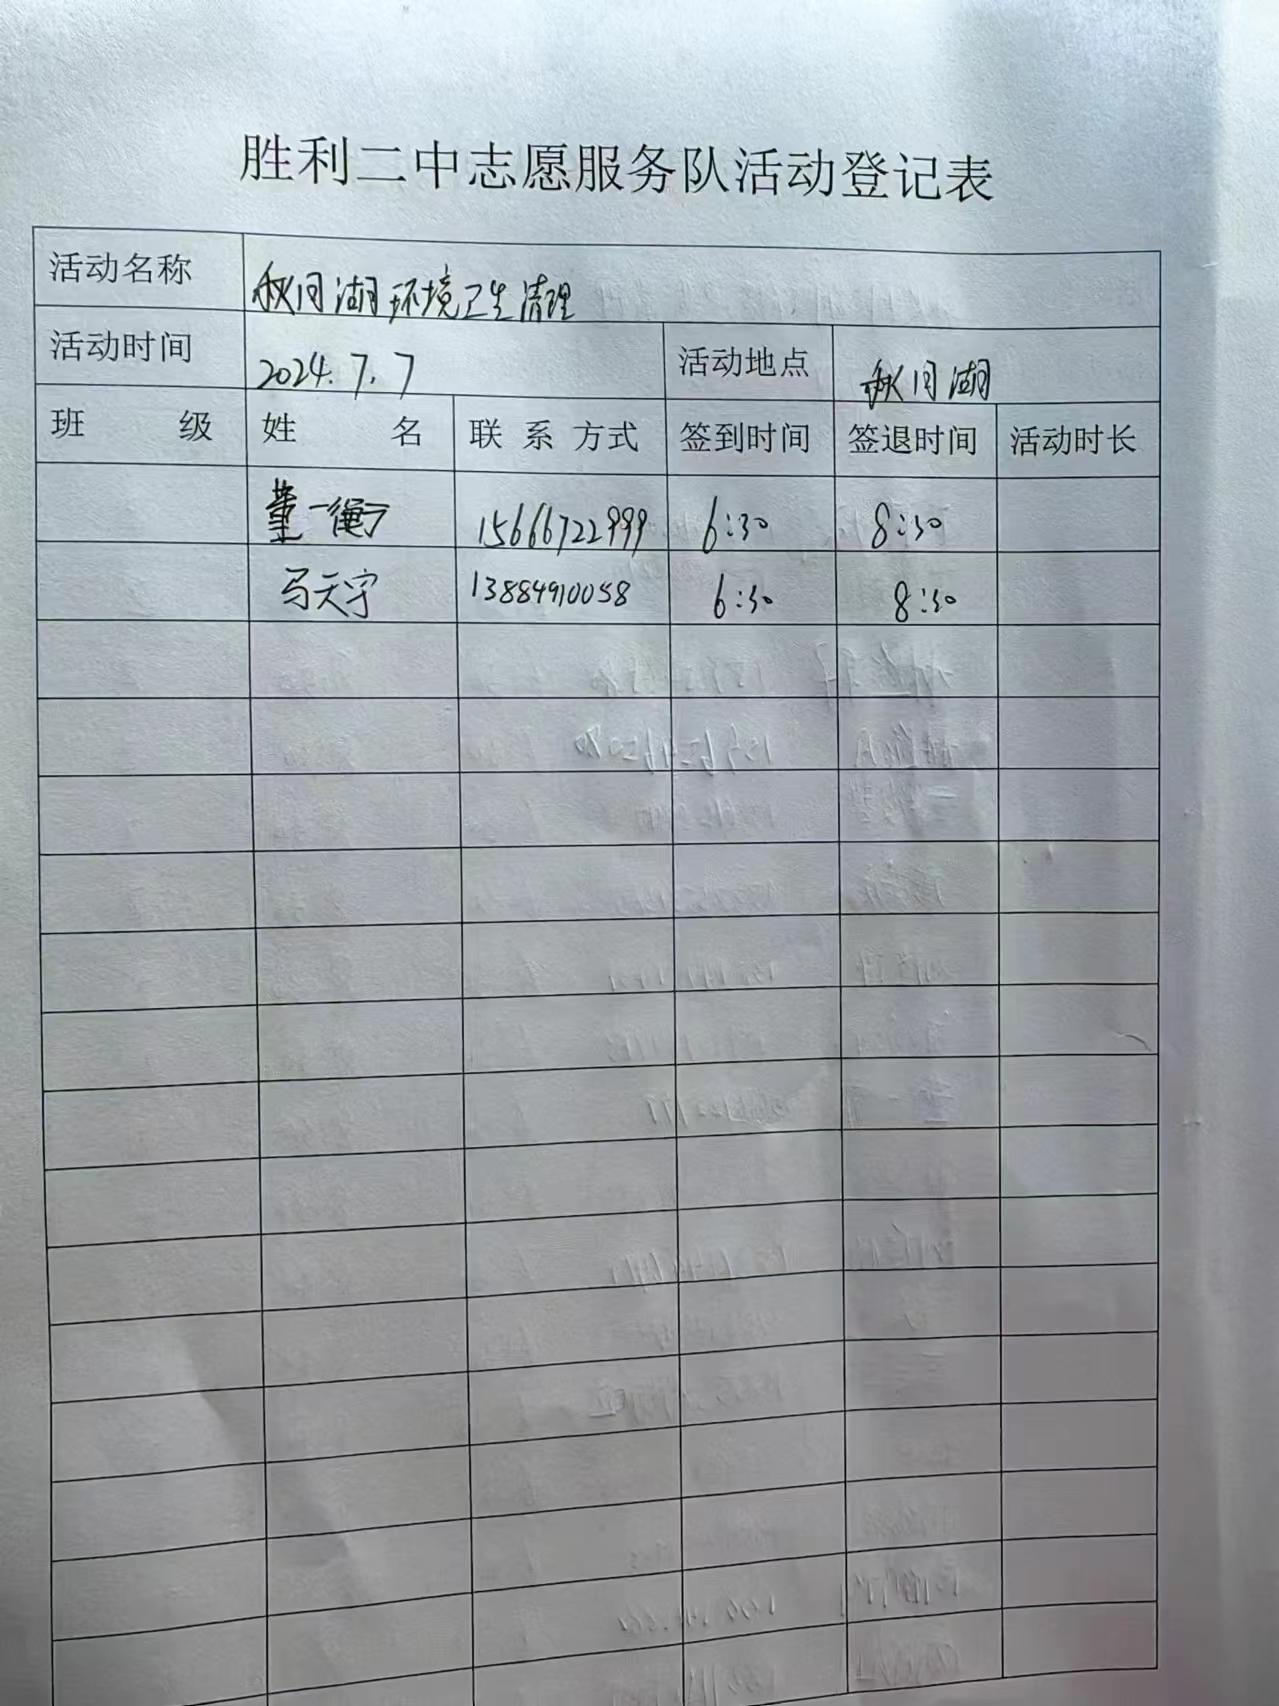 胜利二中志愿服务队活动登记表
活动名称 秋月湖环境卫生清理
活动时间 2024.7.7 活动地点 秋月湖
班 级 姓 名 联 系 方式 签到时间 签退时间 活动时长
董一衡 15666722999 6:30 8:30
马天宇 13884910058 6:30 8:30